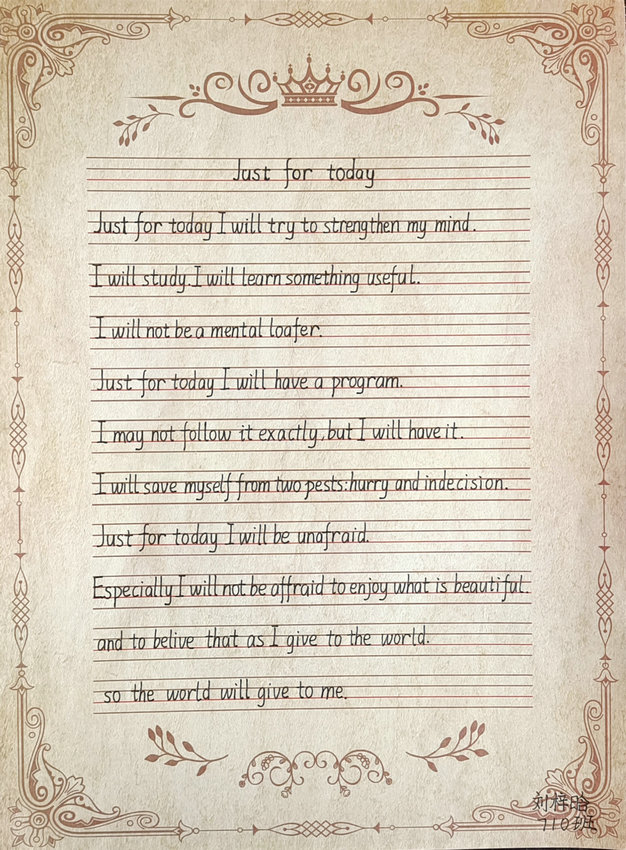 Just for today
Just for today I will try to strengthen my mind.
I will study.I will learn something useful.
I will not be a mental loafer.
Just for today I will have a program.
I may not follow it exactly,but I will have it.
I will save myself from two pests:hurry and indecision.
Just for today I will be unafraid.
Especially I will not be affraid to enjoy what is beautiful.
and to belive that as I give to the world.
so the world will give to me.
刘梓晗
710班